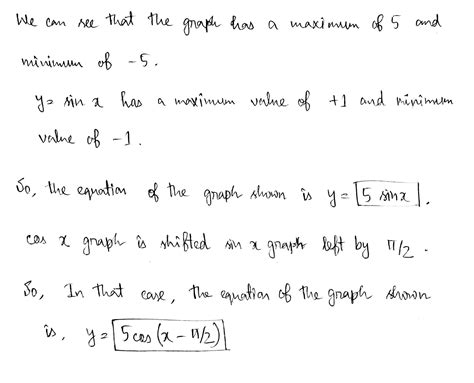 We can see that the graph has a maximum of 5 and
minimum of -5.
y = sin x has a maximum value of +1 and minimum
value of -1.
So, the equation of the graph shown is y = 5 sinx.
cos x graph is shifted sin x graph left by π/2.
So, In that case, the equation of the graph shown
is, y = 5 cos (x - π/2)